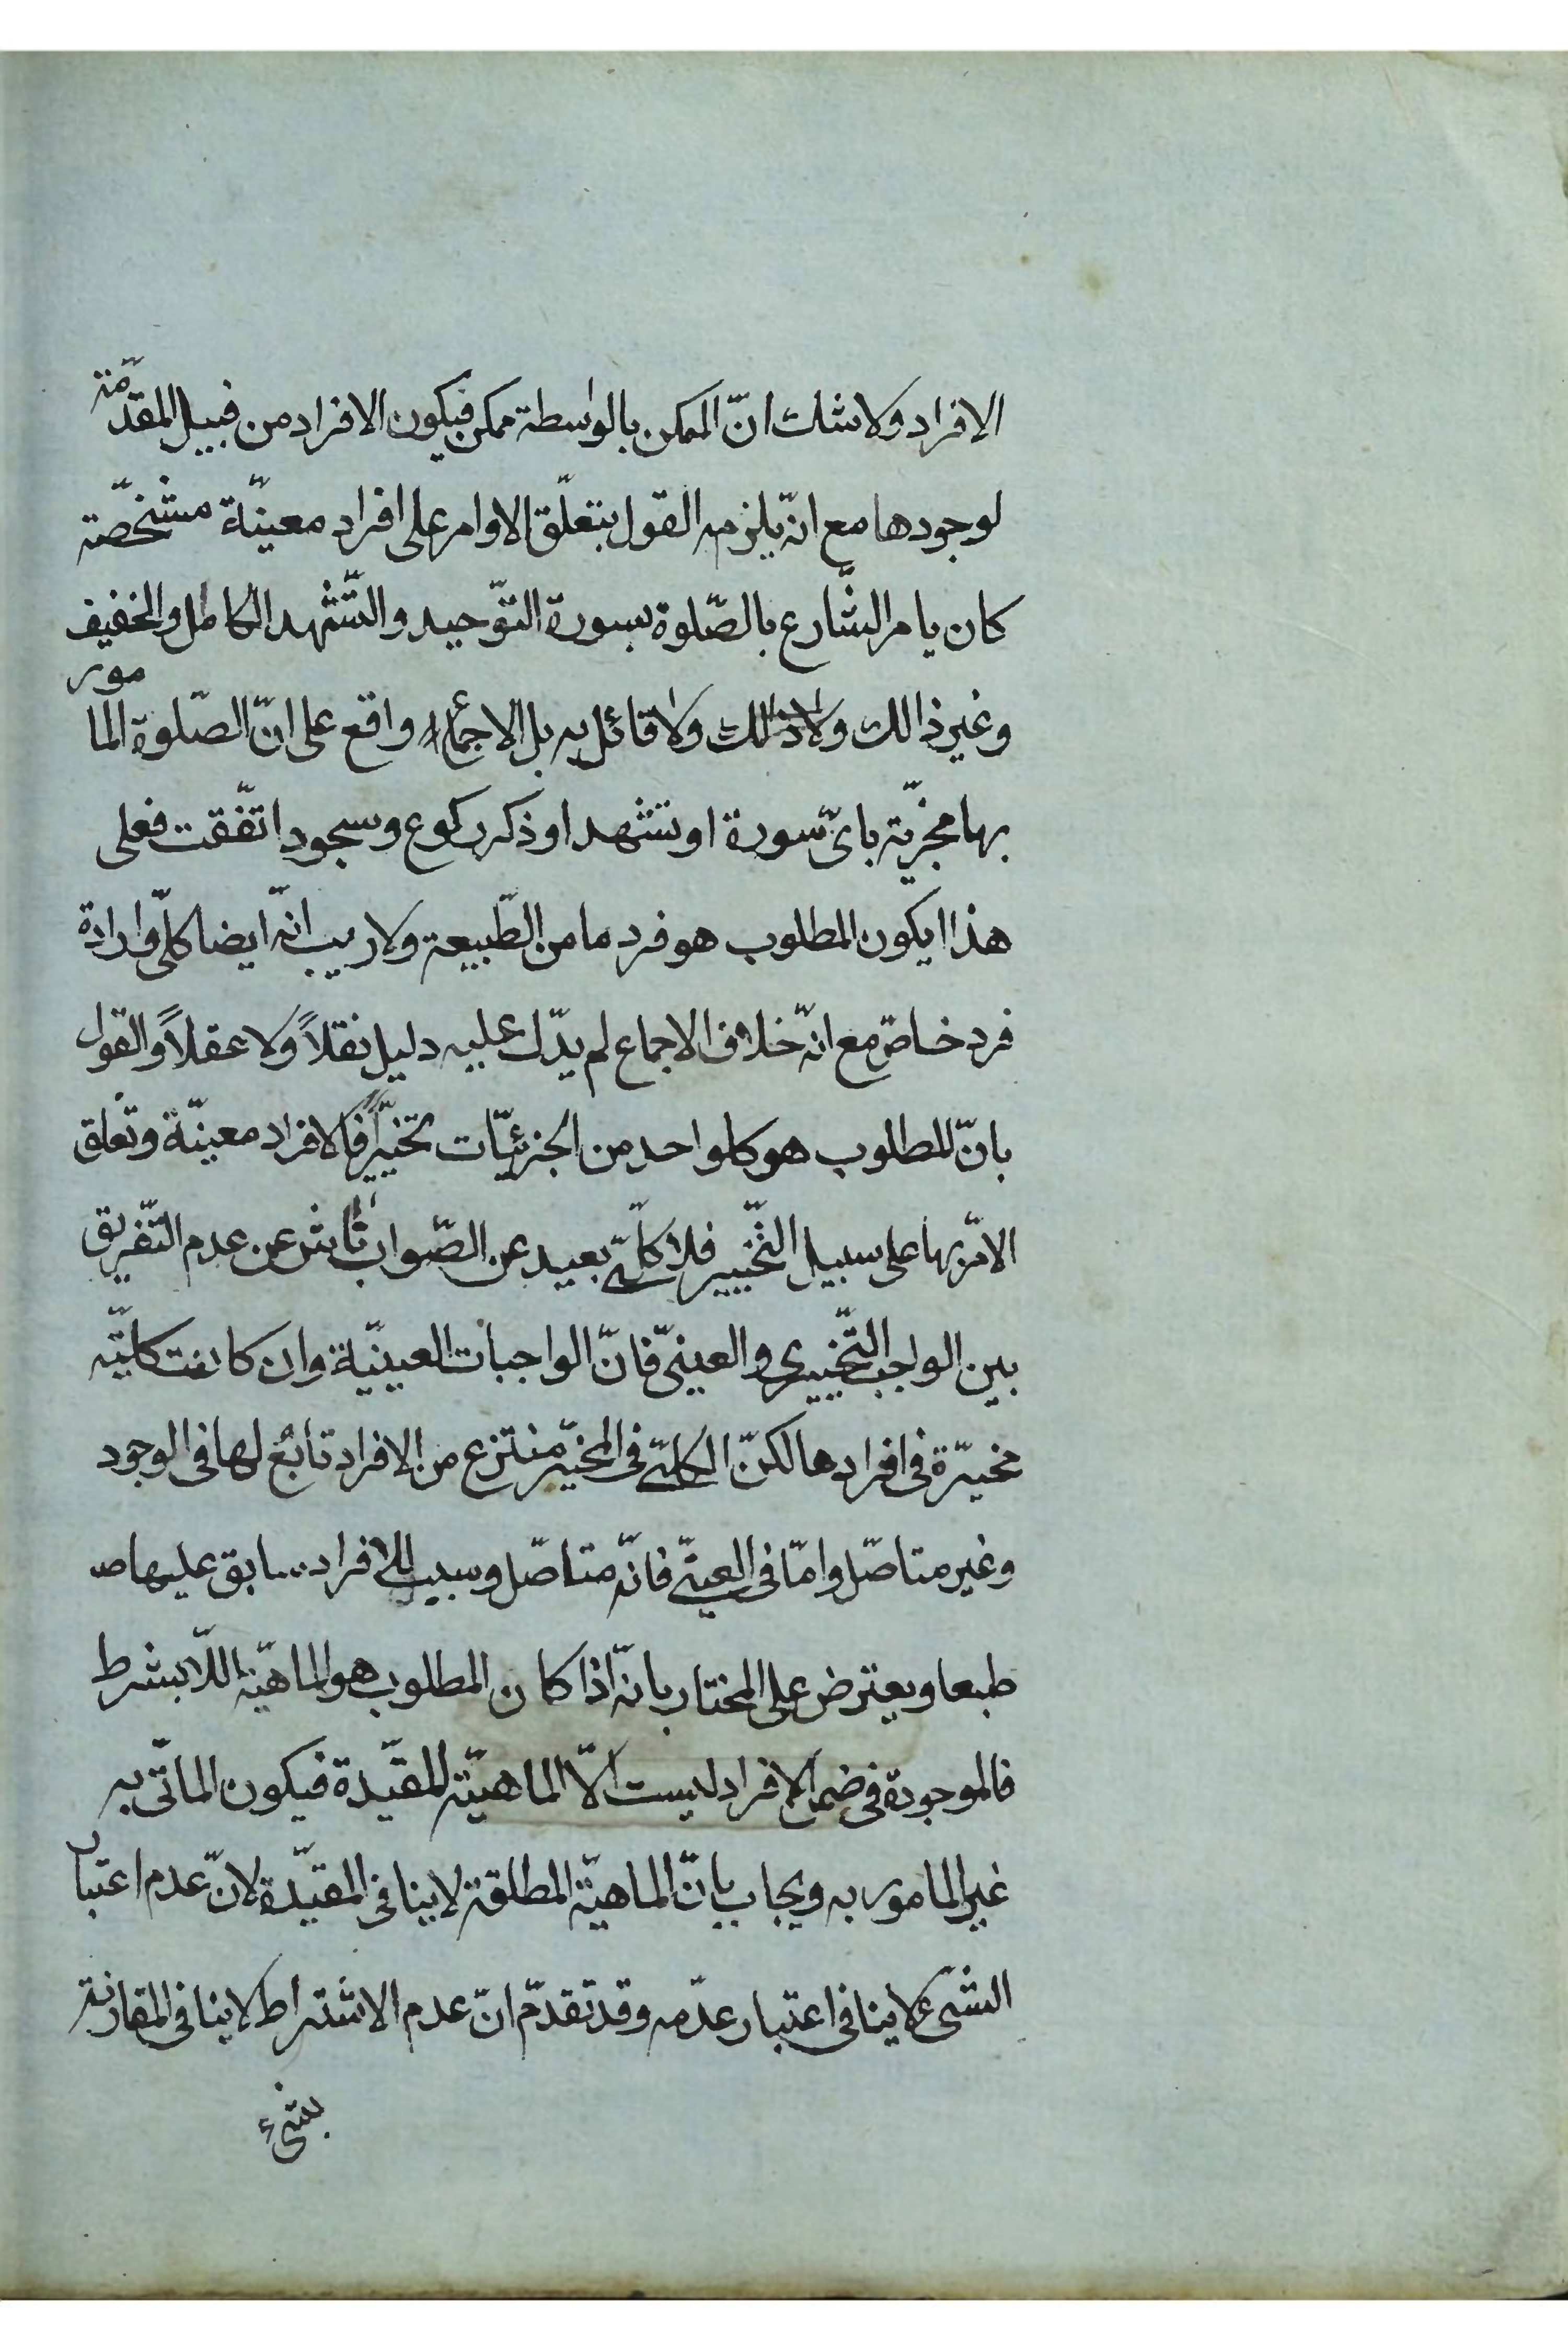 الافراد ولا شك انّ الممكن بالواسطة ممكن فيكون الافراد من قبيل المقدّمة
لوجودها مع انّه يلزمه القول بتعلّق الاوامر على افراد معينّة مشخّصة
كان يامر الشّارع بالصّلوة بسورة التوّحيد والتّشهد الكامل والخفيف
وغير ذالك ولا ذالك ولا قائل به بل الاجماع واقع على انّ الصّلوة المامور
بها مجزيّة باىّ سورة او تشهد او ذكر ركوع وسجود اتّفقت فعلى
هذا ايكون المطلوب هو فرد ما من الطّبيعة ولا ريب انّه ايضا كلّى وارادة
فرد خاصّ مع انّه خلاف الاجماع لم يدّل عليه دليل نقلاً ولا عقلاً والقول
بانّ المطلوب هو كلواحد من الجزئيّات تخييّراً فالافراد معينّة وتعلق
الامّر بها على سبيل التّخيير فلا كلّى بعيد عن الصّواب ناش عن عدم التّفريق
بين الواجب التّخييرى والعينىّ فانّ الواجبات العينيّة وان كانت كليّته
مخيّرة فى افرادها لكنّ الكلىّ فى المخيّر منتزع من الافراد تابعُ لها فى الوجود
وغير متاصّل وامّا فى العينىّ فانّه متاصّل وسبب للافراد سابق عليها صـ
طبعا ويعترض على المختار بانّه اذا كان المطلوب هو الماهيّة اللّا بشرط
فالموجودة فى ضمن الافراد ليست الّا الماهيّة المقيّدة فيكون الماتّى به
غير المامور به ويجاب بانّ الماهيّة المطلقة لا ينافى المقيّدة لانّ عدم اعتبار
الشىّء لا ينافى اعتبار عدّمه وقد تقدّم انّ عدم الاشتراط لا ينافى المقارنة
بشىء